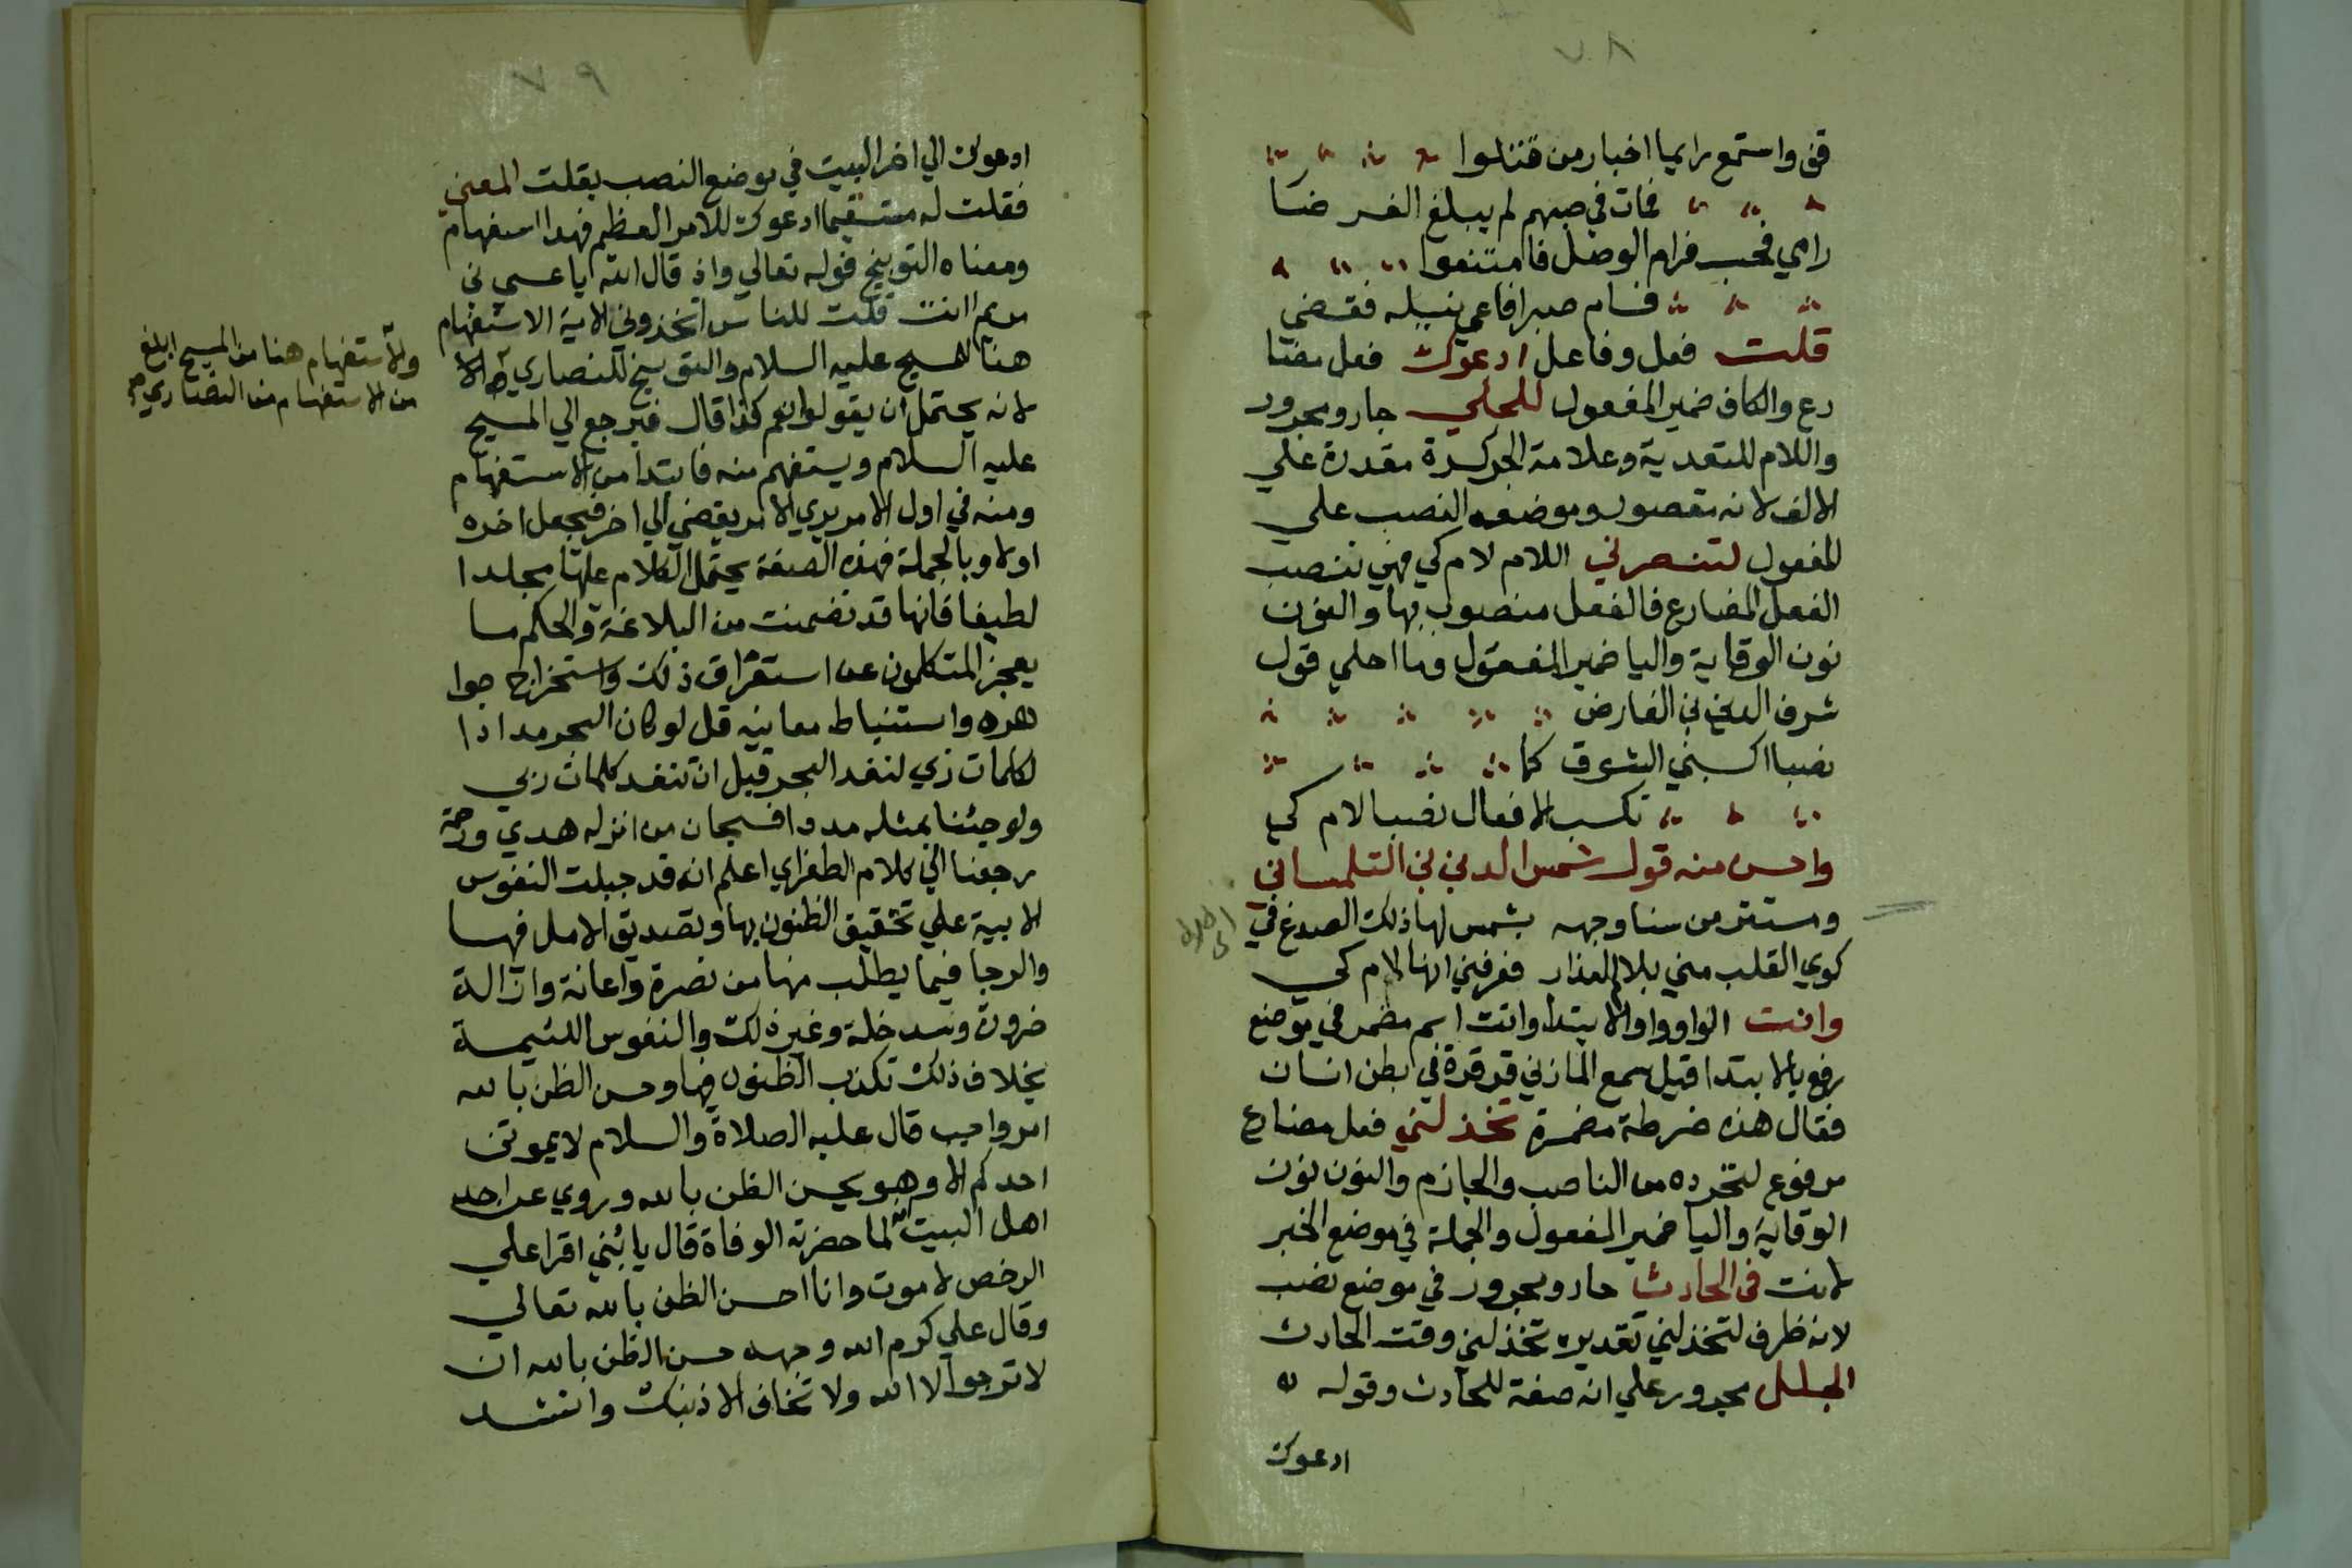 ٧٨
قف واستمع رايما اخبار من قتلوا
فمات في حبهم لم يبلغ الغرضا
راي فحب فرام الوصل فامتنعوا
فسام صبرا فاعي نيله فقضي
قلت فعل وفاعل ادعوك فعل مضا
رع والكاف ضمير المفعول للجلي جار ومجرور
واللام للتعدية وعلامة الجر كسرة مقدرة علي
الالف لانه مقصور وموضعه النصب علي
المفعول لتنصرني اللام لام كي فهي تنصب
الفعل المضارع فالفعل منصوب بها والنون
نون الوقاية واليا ضمير المفعول وما احلي قول
شرف الدين بن الفارض
نصبا اكسبني الشوق كما
تكسب الافعال نصبا لام كي
واحسن منه قول شمس الدين بن التلمساني
ومستتر من سنا وجهه بشمس لها ذلك الصدغ في
كوي القلب مني بلام العذار فعرفني انها لام كي
وانت الواو واو الابتدا وانت اسم مضمر في موضع
رفع بالابتدا قيل سمع المازني قرقرة في بطن انسان
فقال هذه ضرطة مضمرة تخذلني فعل مضارع
مرفوع لتجرده من الناصب والجازم والنون نون
الوقاية واليا ضمير المفعول والجملة في موضع الخبر
لانت في الحادث جار ومجرور في موضع نصب
لانه ظرف لتخذلني تقديره تخذلني وقت الحادث
الجلل مجرور علي انه صفة للحادث وقوله
ادعوك
٧٩
ادعوك الي اخر البيت في موضع النصب بقلت المعني
فقلت له مستفهما ادعوك للامر العظيم فهذا استفهام
ومعناه التوبيخ قوله تعالي واذ قال الله يا عيسي بن
مريم اانت قلت للناس اتخذوني الاية الاستفهام
هنا للمسيح عليه السلام والتوبيخ للنصاري
لانه يحتمل ان يقولوا هو كذا قال فيرجع الي المسيح
عليه السلام ويستفهم منه فابتدا من الاستفهام
ومنه في اول الامر يري الامر يفضي الي اخر فيجعل اخره
اولا وبالجملة فهذه الصفة يحتمل الكلام عليها مجلدا
لطيفا فانها قد تضمنت من البلاغة والحكم ما
يعجز المتكلمون عن استغراق ذلك واستخراج جوا
هره واستنباط معانيه قل لو كان البحر مدادا
لكلمات ربي لنفد البحر قبل ان تنفد كلمات ربي
ولو جئنا بمثله مددا فسبحان من انزله هدي ورحمة
رجعنا الي كلام الطغراي اعلم انه قد جبلت النفوس
الابية علي تحقيق الظنون بها وتصديق الامل فيها
والرجا فيما يطلب منها من نصرة واعانة وازالة
ضرورة وسد خلة وغير ذلك والنفوس اللئيمة
بخلاف ذلك تكذب الظنون فيها وحسن الظن بالله
امر واجب قال عليه الصلاة والسلام لا يموتن
احدكم الا وهو يحسن الظن بالله وروي عن احد
اهل البيت انه لما حضرته الوفاة قال يا بني اقرا علي
الرخص لاموت وانا احسن الظن بالله تعالي
وقال علي كرم الله وجهه حسن الظن بالله ان
لا ترجوا الا الله ولا تخاف الا ذنبك وانشد
والاستفهام هنا من المسيح ابلغ
من الاستفهام من النصاري صح